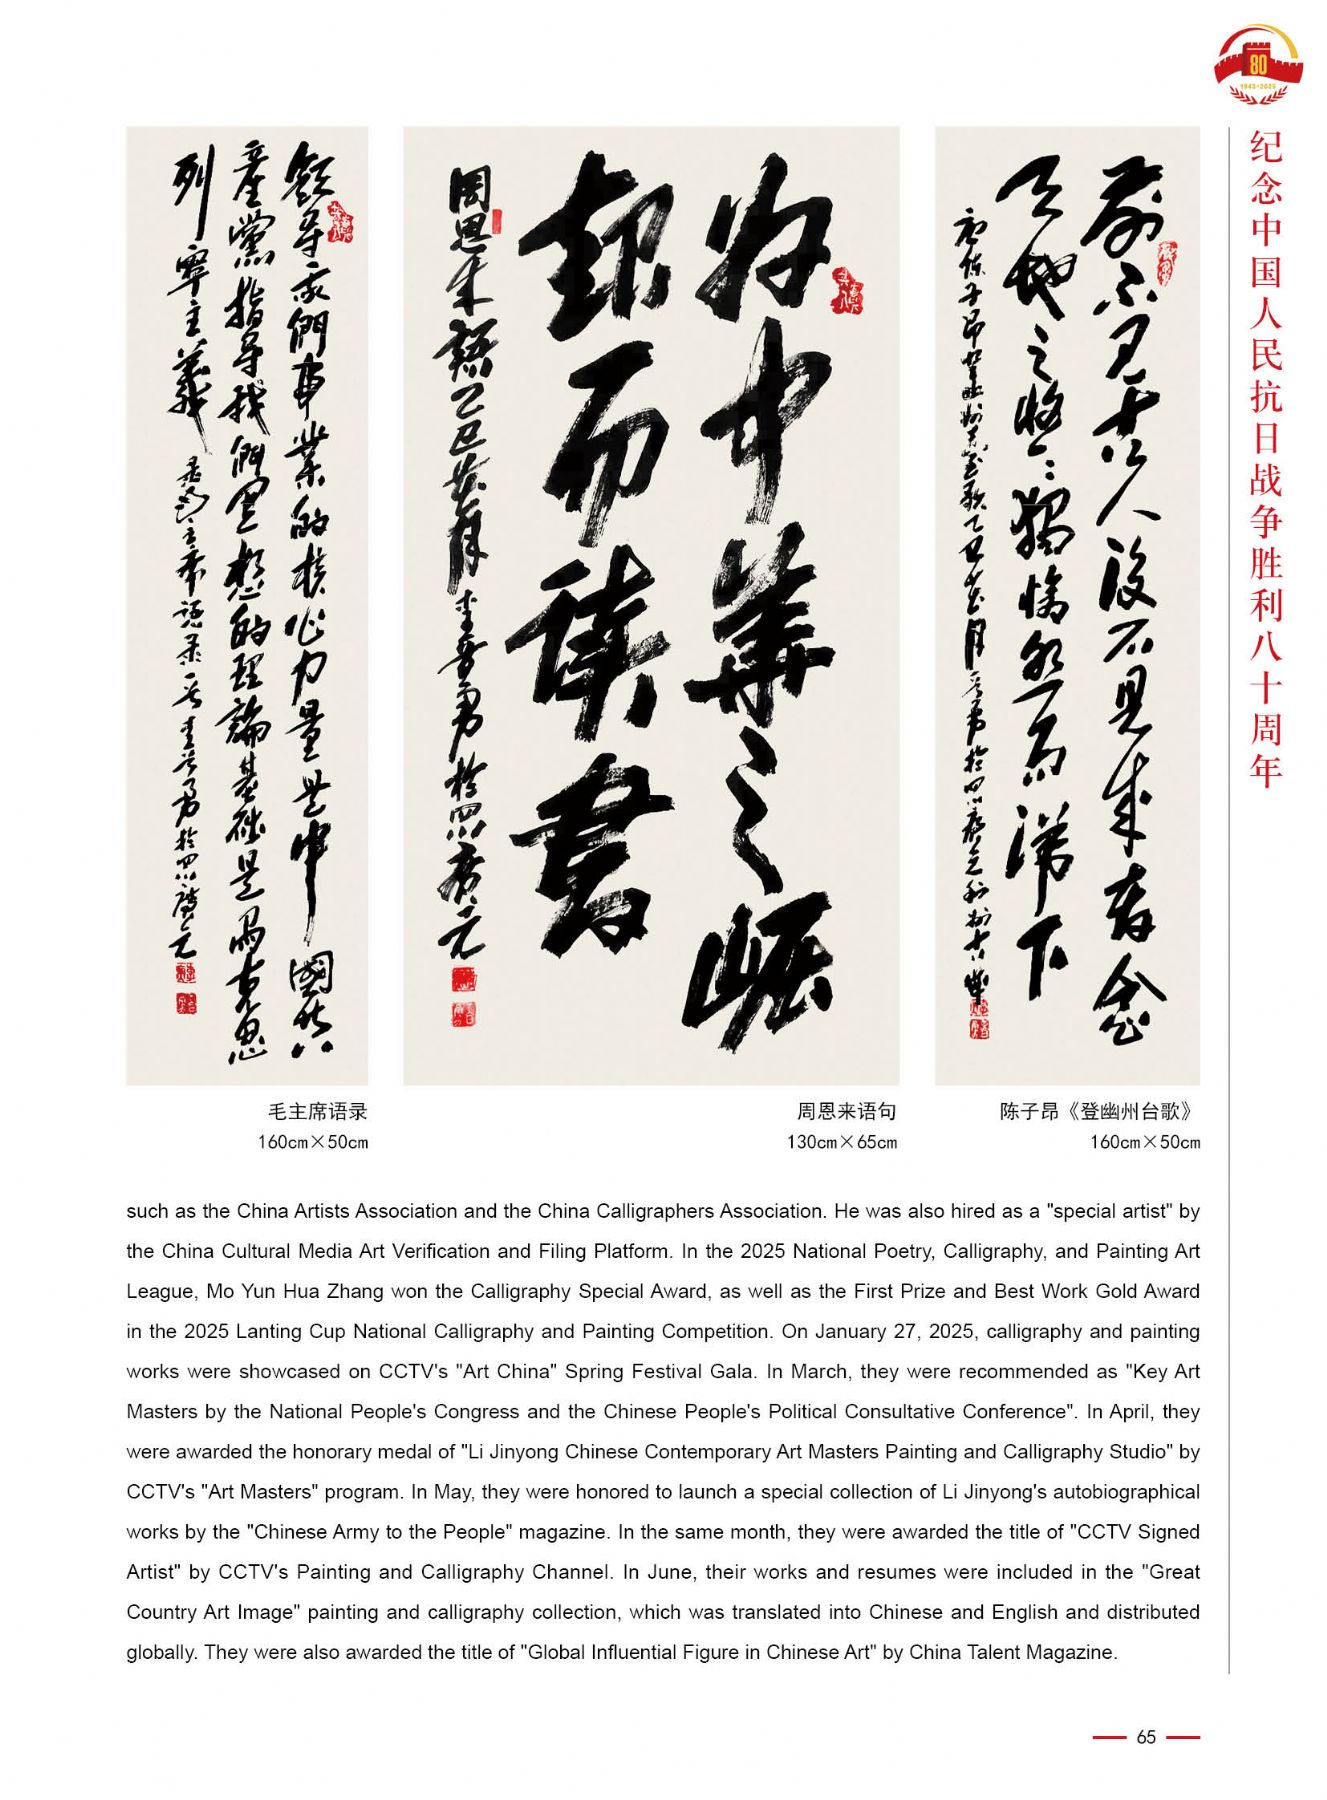 80
1945-2025
纪念中国人民抗日战争胜利八十周年
领导我们事业的核心力量是中国共
产党指导我们思想的理论基础是马克思
列宁主义
毛主席语录
为中华之崛
起而读书
周恩来语乙巳
李晋勇於四川广元
前不见古人后不见来者念
天地之悠々独怆然而涕下
毛主席语录
160cm×50cm
周恩来语句
130cm×65cm
陈子昂《登幽州台歌》
160cm×50cm
such as the China Artists Association and the China Calligraphers Association. He was also hired as a "special artist" by
the China Cultural Media Art Verification and Filing Platform. In the 2025 National Poetry, Calligraphy, and Painting Art
League, Mo Yun Hua Zhang won the Calligraphy Special Award, as well as the First Prize and Best Work Gold Award
in the 2025 Lanting Cup National Calligraphy and Painting Competition. On January 27, 2025, calligraphy and painting
works were showcased on CCTV's "Art China" Spring Festival Gala. In March, they were recommended as "Key Art
Masters by the National People's Congress and the Chinese People's Political Consultative Conference". In April, they
were awarded the honorary medal of "Li Jinyong Chinese Contemporary Art Masters Painting and Calligraphy Studio" by
CCTV's "Art Masters" program. In May, they were honored to launch a special collection of Li Jinyong's autobiographical
works by the "Chinese Army to the People" magazine. In the same month, they were awarded the title of "CCTV Signed
Artist" by CCTV's Painting and Calligraphy Channel. In June, their works and resumes were included in the "Great
Country Art Image" painting and calligraphy collection, which was translated into Chinese and English and distributed
globally. They were also awarded the title of "Global Influential Figure in Chinese Art" by China Talent Magazine.
65